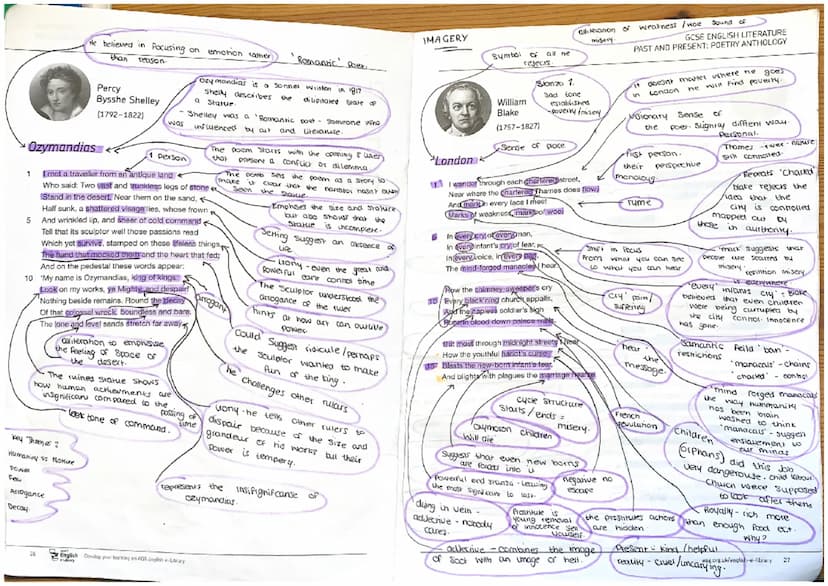 He believed in focusing on emotion rather
than reason.
'Romantic' Poet.
Percy
Bysshe Shelley
(1792–1822)
Ozymandias is a sonnet written in 1817
Shelly describes the dilipated state of
a statue.
- Shelley was a 'Romantic poet - someone who
was influenced by art and literature.
Ozymandias
The poem starts with the opening 8 lines
that present a conflict or dilemma
1 person
The poem sets the poem as a story to
make it clear that the narrator hasn't even
seen the statue
1 I met a traveller from an antique land
Who said: Two vast and trunkless legs of stone
Stand in the desert. Near them on the sand,
Half sunk, a shattered visage lies, whose frown
5 And wrinkled lip, and sneer of cold command
Tell that its sculptor well those passions read
Which yet survive, stamped on these lifeless things,
The hand that mocked them and the heart that fed;
And on the pedestal these words appear:
10 'My name is Ozymandias, king of kings:
Look on my works, ye Mighty, and despair!'
Nothing beside remains. Round the decay
Of that colossal wreck, boundless and bare,
The lone and level sands stretch far away.
Emphasis the size and stature
but also shows that the
statue is incomplete.
Setting suggest an absence of
life
Irony - even the great and
powerful can't control time
The sculptor understood the
arrogance of the ruler
arrogant
Hints at how art can outlive
power.
Could suggest ridicule/perhaps
the sculptor wanted to make
fun of the king.
He challenges other rulers
alliteration to emphasise
the feeling of space of
the desert.
The ruined statue shows
how human achievements are
insignificant compared to the
passing of
time
Irony - he tells other rulers to
despair because of the size and
grandeur of his works but their
power is tempery.
tone of command.
represents the insignificance of
ozymandias.
Key Themes:
Humanity vs Nature
Power
Arrogance
Decay
26
English
Develop your teaching on AQA english e-Library
IMAGERY
alliteration of weakness/woe sound of
misery.
GCSE ENGLISH LITERATURE
PAST AND PRESENT: POETRY ANTHOLOGY
Symbol of all he
rejects.
William
Blake
(1757–1827)
Stanza 1.
Sad tone
established
- poverty/misery
It doesnt matter where he goes
in London he will find poverty.
Visionary sense of
the poet - slightly different way.
Personal.
Sense of pace
London
First person.
their perspective
monolog
Themes - power - nature
still controlled.
1 I wander through each chartered street,
Near where the chartered Thames does flow,
And mark in every face I meet
Marks of weakness, marks of woe.
rhyme
Repeats 'charted'
blake rejects the
idea that the
city is controlled
mapped out by
those in authority.
5 In every cry of every man,
In every infant's cry of fear,
In every voice, in every ban,
The mind-forged manacles I hear:
Shift in focus
from what you can see
to what you can hear
'mark' suggests that
people are scarred by
misery
repetition misery
is everywhere
How the chimney-sweeper's cry
10 Every black'ning church appalls,
And the hapless soldier's sigh
Runs in blood down palace walls.
Cry 'pain/
suffering
'Every' infants cry - Blake
believed that even children
were being currupted by
the city control - innocence
has gone.
But most through midnight streets I hear
How the youthful harlot's curse
15 Blasts the new-born infant's tear,
And blights with plagues the marriage hearse.
hear
the
message.
Semantic field 'ban' -
restrictions
'manacals' - chains
'charted' - control
'mind forged manacals'
the way humanity
has been brain
washed to think
'manacals' - suggest
enslavement to
our minds
Cycle structure
starts/ends =
misery.
oxymoron children
will die
French
revolution
Children
(orphans) did this job
very dangerouse. child labour
Church were supposed
to look after them
Suggest that even new borns
are forced into it
Powerful end stanza - leaving
the most significant to last.
negative no
escape
dying in vein -
adjective - nobody
cares.
Prostitute is
young removal
of innocence
the prostitutes actions
are hidden
Royalty - rich more
than enough food ect.
Why?
- adjective - combines the image
of soot with an image of hell.
Present = kind/helpful
reality - cruel/uncarying.
aqa.org.uk/english-e-library
27